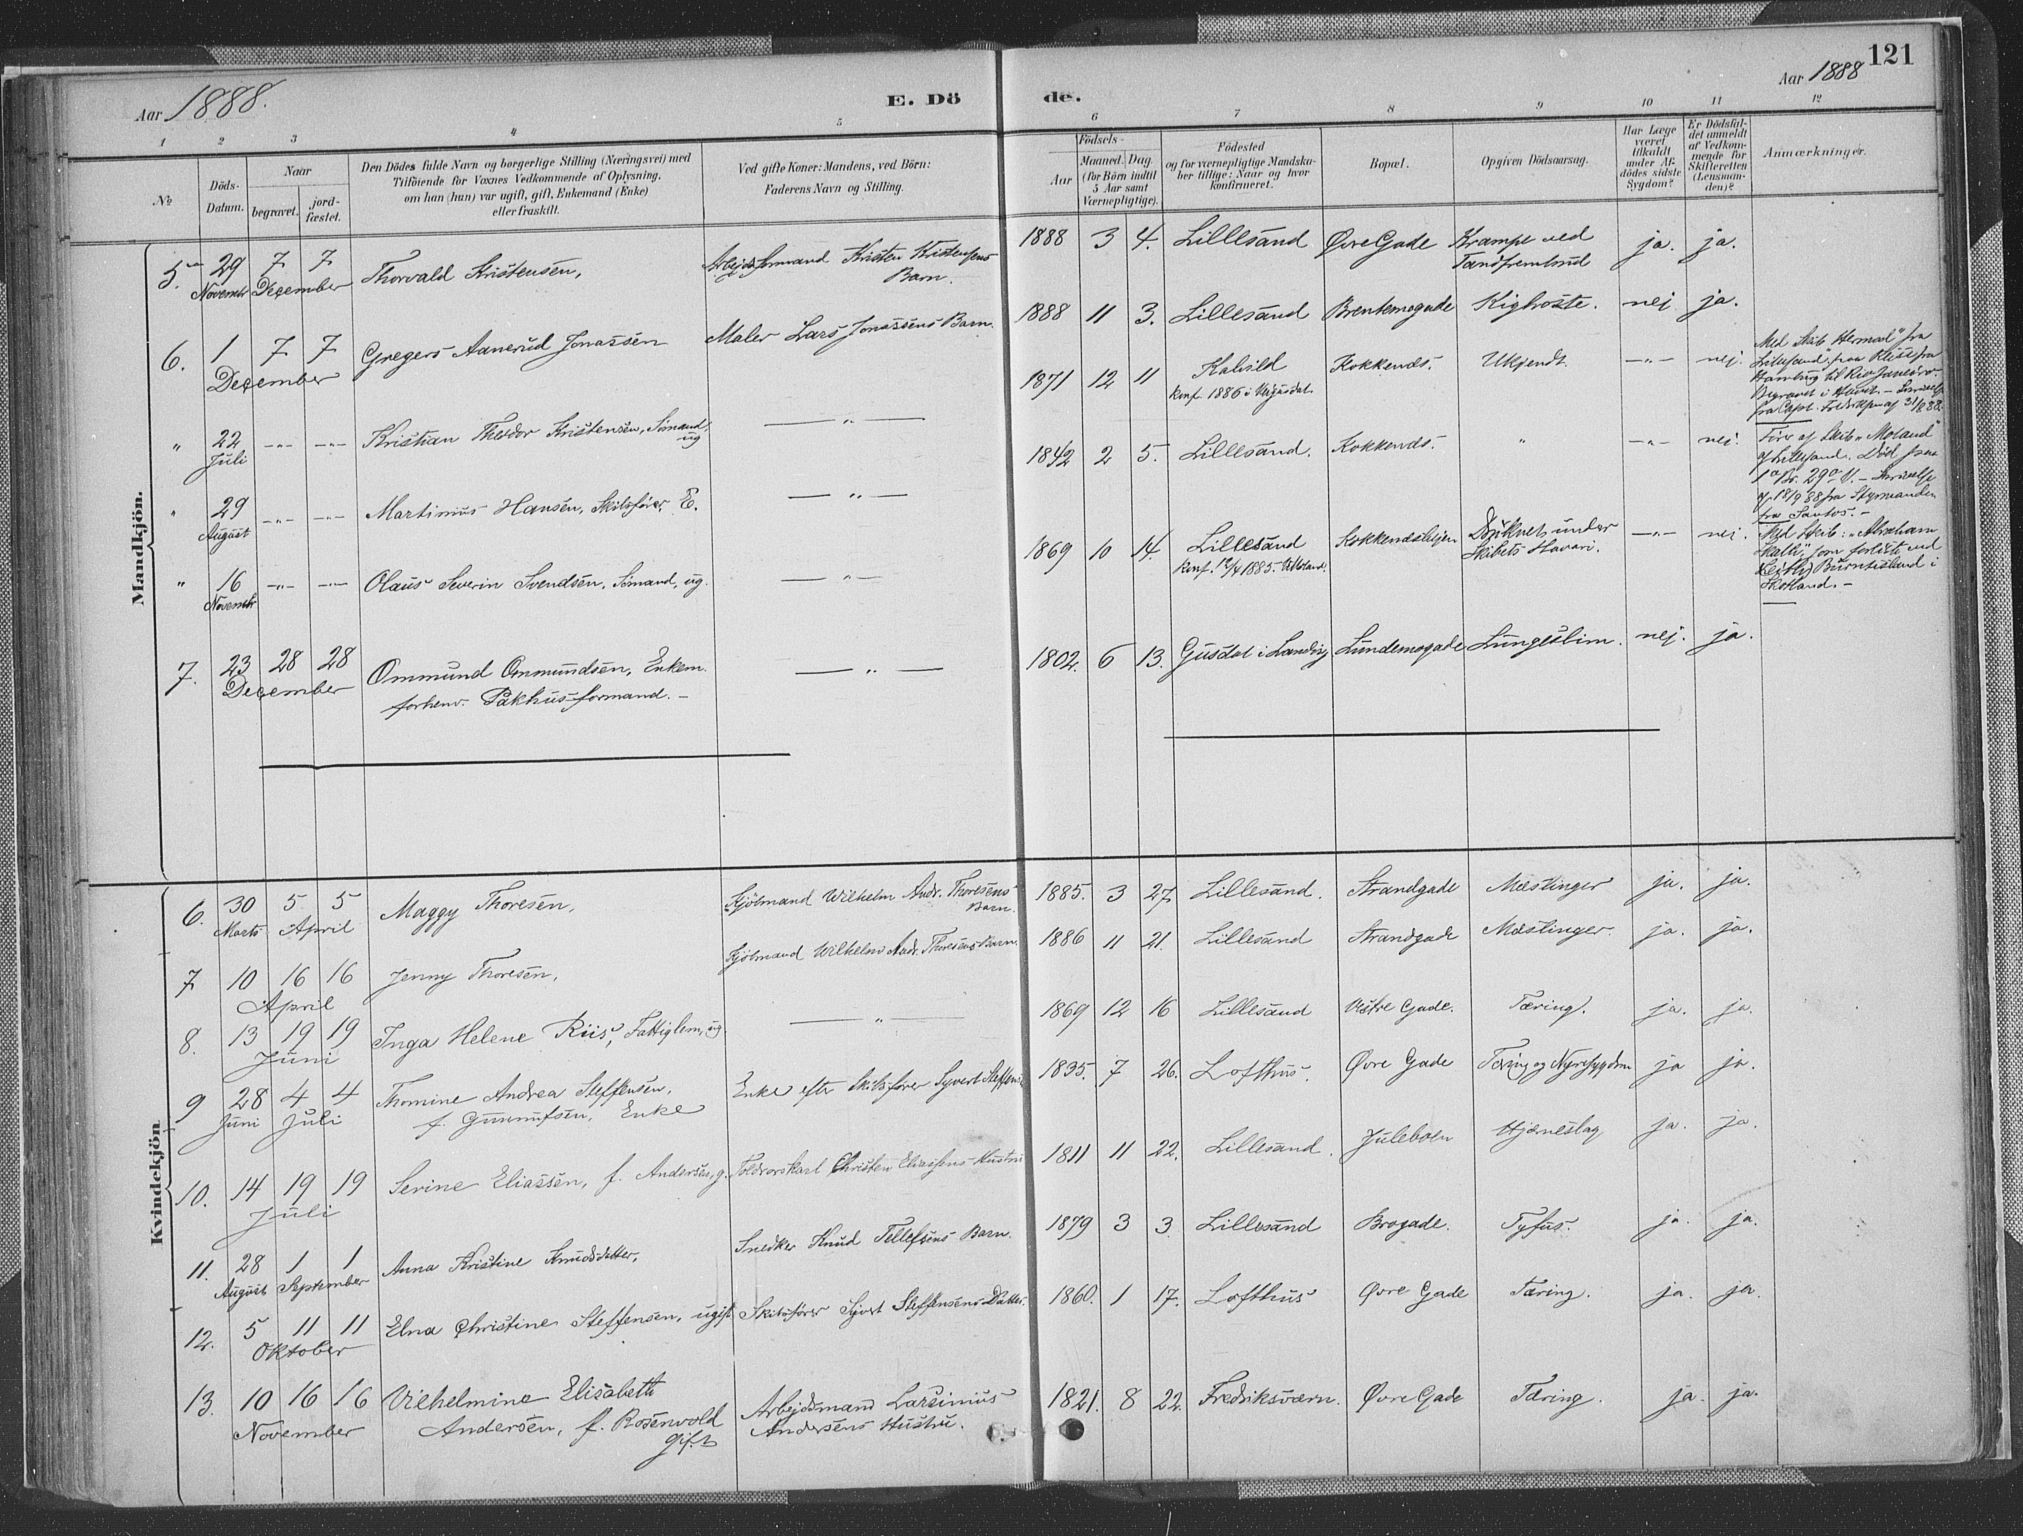 Aar 1888.
E. Dö
de.
Aar 1888
121
1 2 3 4 5 6 7 8 9 10 11 12
№
Döds-
Datum.
Naar
begravet.
jord-
fæstet.
Den Dödes fulde Navn og borgerlige Stilling (Næringsvei) med
Tilföiende for Voxnes Vedkommende af Oplysning,
om han (hun) var ugift, gift, Enkemand (Enke)
eller fraskilt.
Ved gifte Koner: Mandens, ved Börn:
Faderens Navn og Stilling.
Födsels-
Aar
Maaned. Dag.
(for Börn indtil
5 Aar samt
Værnepligtige).
Födested
og for værnepligtige Mandska-
ber tillige: Naar og hvor
konfirmeret.
Bopæl.
Opgiven Dödsaarsag.
Har Læge
været
tilkaldt
under Af-
dödes sidste
Sygdom?
Er Dödsfal-
det anmeldt
af Vedkom-
mende for
Skifteretten
(Lensman-
den)?
Anmærkninger.
Mandkjön.
5. 29 7 7 Thorvald Kristensen, Arbejdsformand Kristen Kristensens 1888 3 4. Lillesand Øvre Gade Krampe ved ja. ja.
Novembr December Barn. Tandfrembrud
6. 1 7 7 Gregers Aanerud Jonassen Maler Lars Jonassens Barn. 1888 11 3. Lillesand Brentemogade Kighoste. nej ja.
December
" 22 -"- -"- Kristian Theodor Kristensen, Sömand, ug — " — 1871 12 11 Kalvild Kokkenæs. Ukjendt. -"- nej. Med Skib Hermod" fra
Juli Konf. 1886 i Vegusdal. Lillesand, paa Rejse fra
Hamburg til Rio Janeiro.
Begravet i Havet. -
fra Capt. 31/8 88.
" 29 -"- -"- Martinius Hansen, Skibsfører, E. — " — 1842 2 5. Lillesand. Kokkenæs. " -"- nej. Fører af Skib "Moland"
August af Lillesand. Död paa
fra Styrmanden
fra Santos. -
" 16 -"- -"- Olaus Severin Svendsen, Sömand, ug. — " — 1869 10 14. Lillesand Kokkenæshejen Druknet under -"- nej. Med Skib: "Abraham
Novembr Konf. 12/4 1885. V. Moland. Skibets Havari. som forliste ved
Leith, Burntisland i
Skotland. -
7. 23 28 28 Ommund Ommundsen, Enkem. — " — 1802. 6 13. Gusdal i Landvig Lundemogade Lungeslim. nej. ja.
December forhenv. Pakhusformand. -
Kvindekjön
6. 30 5 5 Maggy Thoresen, Kjölmand Wilhelm Andr. Thoresens 1885. 3 27 Lillesand. Strandgade Mæslinger ja. ja.
Marts April Barn.
7 10 16 16 Jenny Thoresen, Kjölmand Wilhelm Andr. Thoresens Barn. 1886 11 21. Lillesand Strandgade Mæslinger ja. ja.
April
8. 13 19 19 Inga Helene Riis, Fattiglem, ug. — " — 1869 12 16 Lillesand Vestre Gade. Tæring. ja. ja.
Juni
9 28 4 4 Thomine Andrea Steffensen, Enke efter Skibsfører Syvert Steffens. 1835. 7 26. Lofthus. Øvre Gade Tæring og Nyresygdom ja ja.
Juni Juli f. Gunnufsen, Enke
10. 14 19 19 Serine Eliassen, f. Andersen, g. Toldrorskarl Christen Eliassens Hustru 1811 11 22. Lillesand. Juleboen Hjerneslag ja. ja.
Juli
11. 28 1 1 Anna Kristine Knudsdatter, Snedker Knud Tellefsens Barn. 1879 3 3. Lillesand Brogade. Tyfus. ja. ja.
August September
12. 5 11 11 Elna Christine Steffensen, ugift Skibsfører Syvert Steffensens Datter. 1860. 1 17. Lofthus Øvre Gade Tæring. ja. ja.
Oktober
13. 10 16 16 Vilhelmine Elisabeth Arbejdsmand Larsinius 1821. 8 22. Fredriksværn. Øvre Gade Tæring. ja. ja.
November Andersen, f. Rosenvold Andersens Hustru.
gift